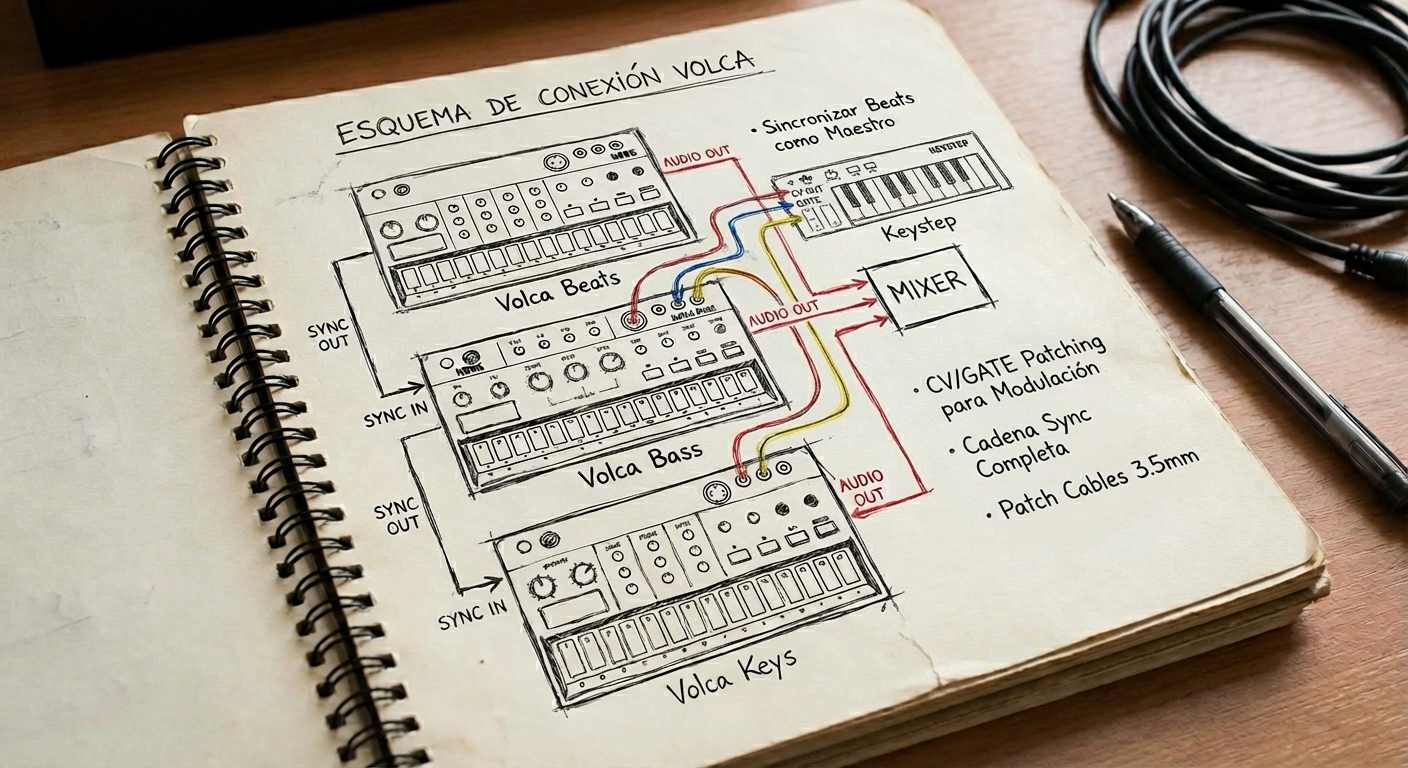 ESQUEMA DE CONEXIÓN VOLCA
• Sincronizar Beats
como Maestro
AUDIO OUT
KEYSTEP
CV OUT
GATE
Keystep
Volca Beats
MIXER
SYNC
OUT
AUDIO OUT
SYNC IN
• CV/GATE Patching
para Modulación
Volca Bass
• Cadena Sync
Completa
AUDIO
OUT
• Patch Cables 3.5mm
SYNC
OUT
SYNC IN
Volca Keys